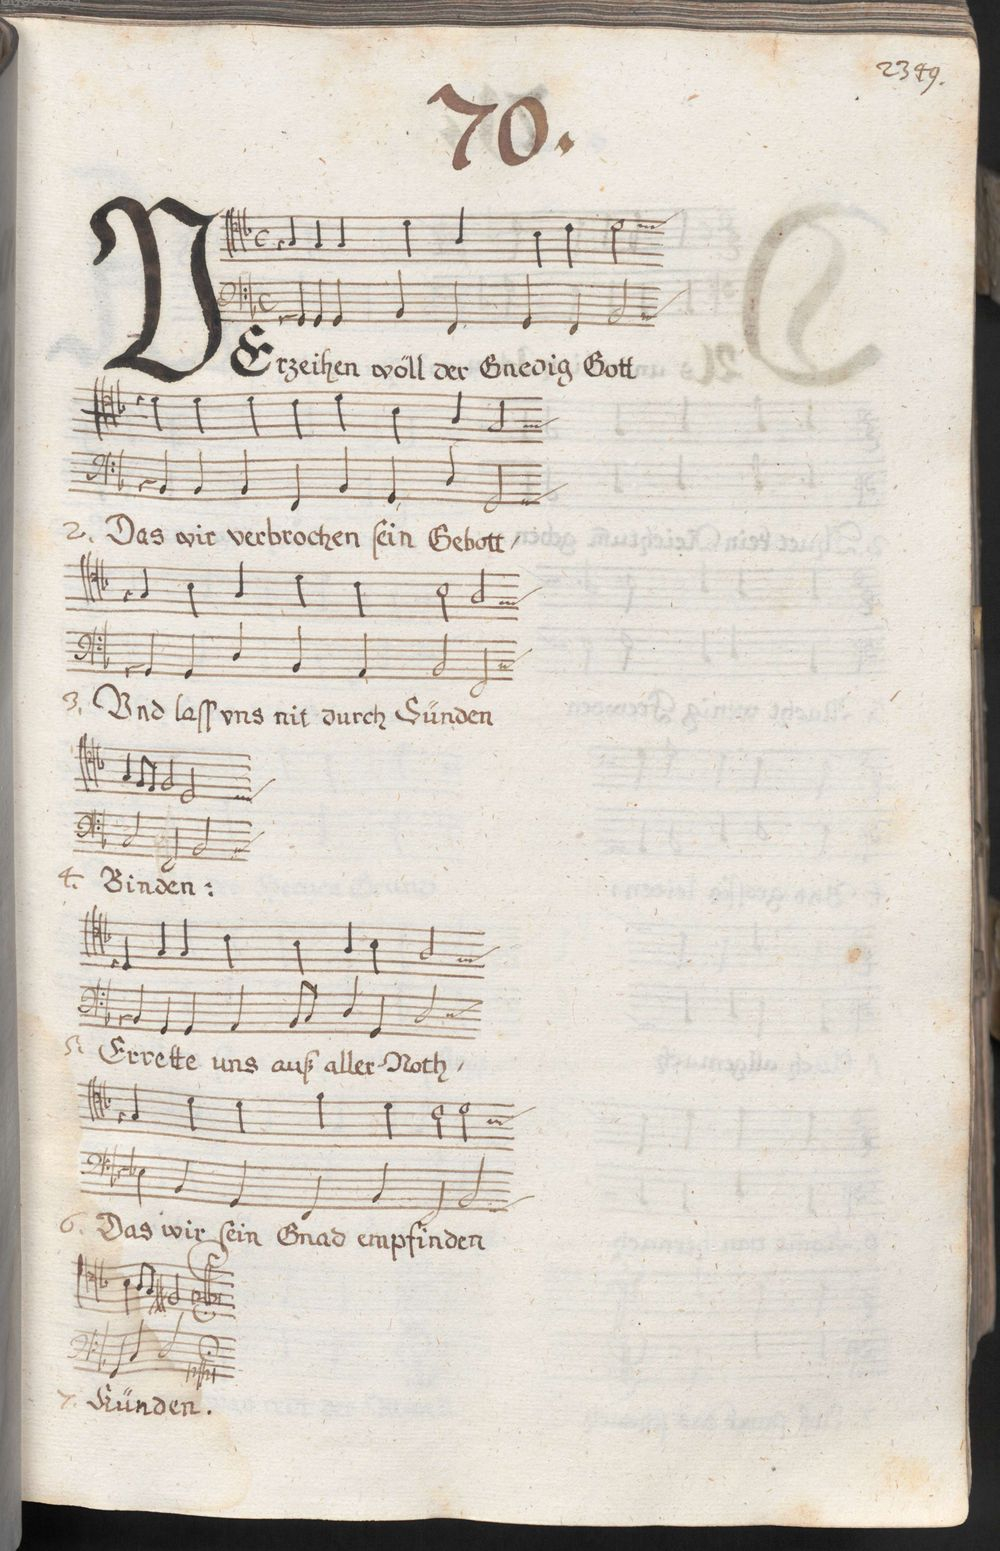 2349.
70.
VErzeihen wöll der Gnedig Gott
2. Das wir verbrochen sein Gebott,
3. Vnd lass vns nit durch Sünden
4. Binden:
5. Errette uns auß aller Noth,
6. Das wir sein Gnad empfinden
7. Künden.